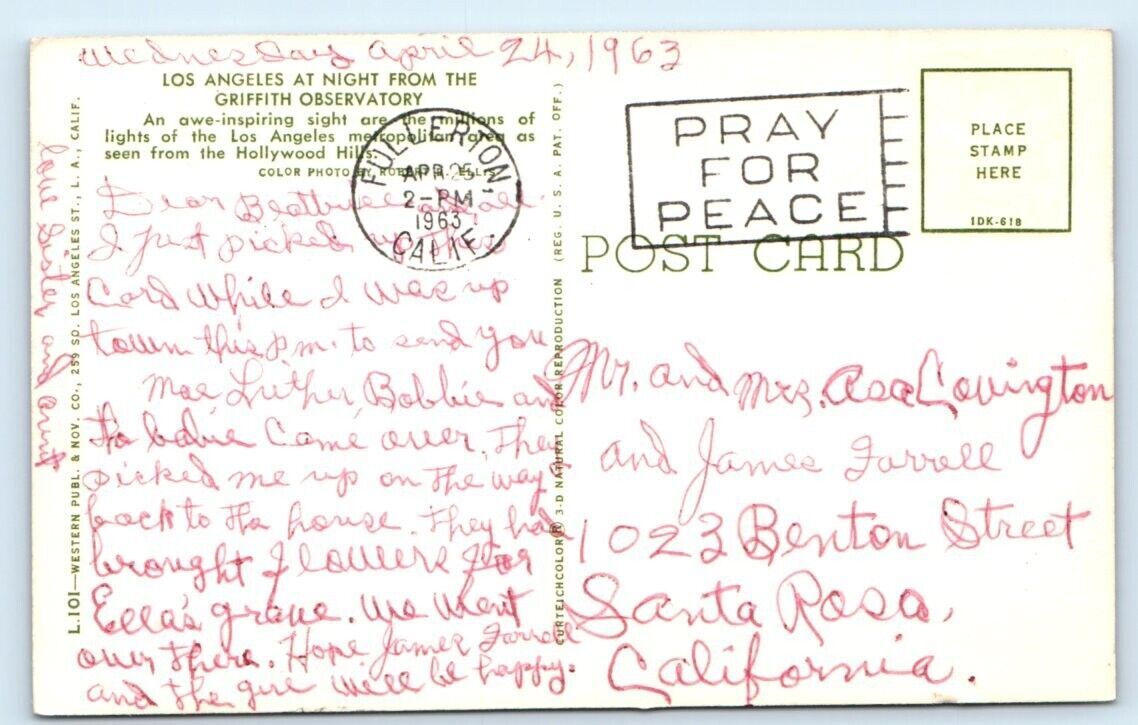 Wednesday April 24, 1963
LOS ANGELES AT NIGHT FROM THE
GRIFFITH OBSERVATORY
An awe-inspiring sight are the millions of
lights of the Los Angeles metropolitan area as
seen from the Hollywood Hills.
COLOR PHOTO BY ROBERT D. ELLIS
Dear Beatrice and all.
I just picked up this
Card while I was up
town this pm. to send you
Mae Luther, Bobbie and
tha babie Came over. They
picked me up on the way
back to tha house. They had
brought flowers for
Ella's grave. We went
over there. Hope James Farrell
and the girl will be happy.
Love Sister and Aunt
L.101—WESTERN PUBL. & NOV. CO., 259 SO. LOS ANGELES ST., L. A., CALIF.
FULLERTON
APR 25
2-PM
1963
CALIF.
CURTEICHCOLOR® 3-D NATURAL COLOR REPRODUCTION (REG. U. S. A. PAT. OFF.)
PRAY
FOR
PEACE
PLACE
STAMP
HERE
1DK-618
POST CARD
Mr. and Mrs. Asa Covington
and James Farrell
1023 Benton Street
Santa Rosa,
California.